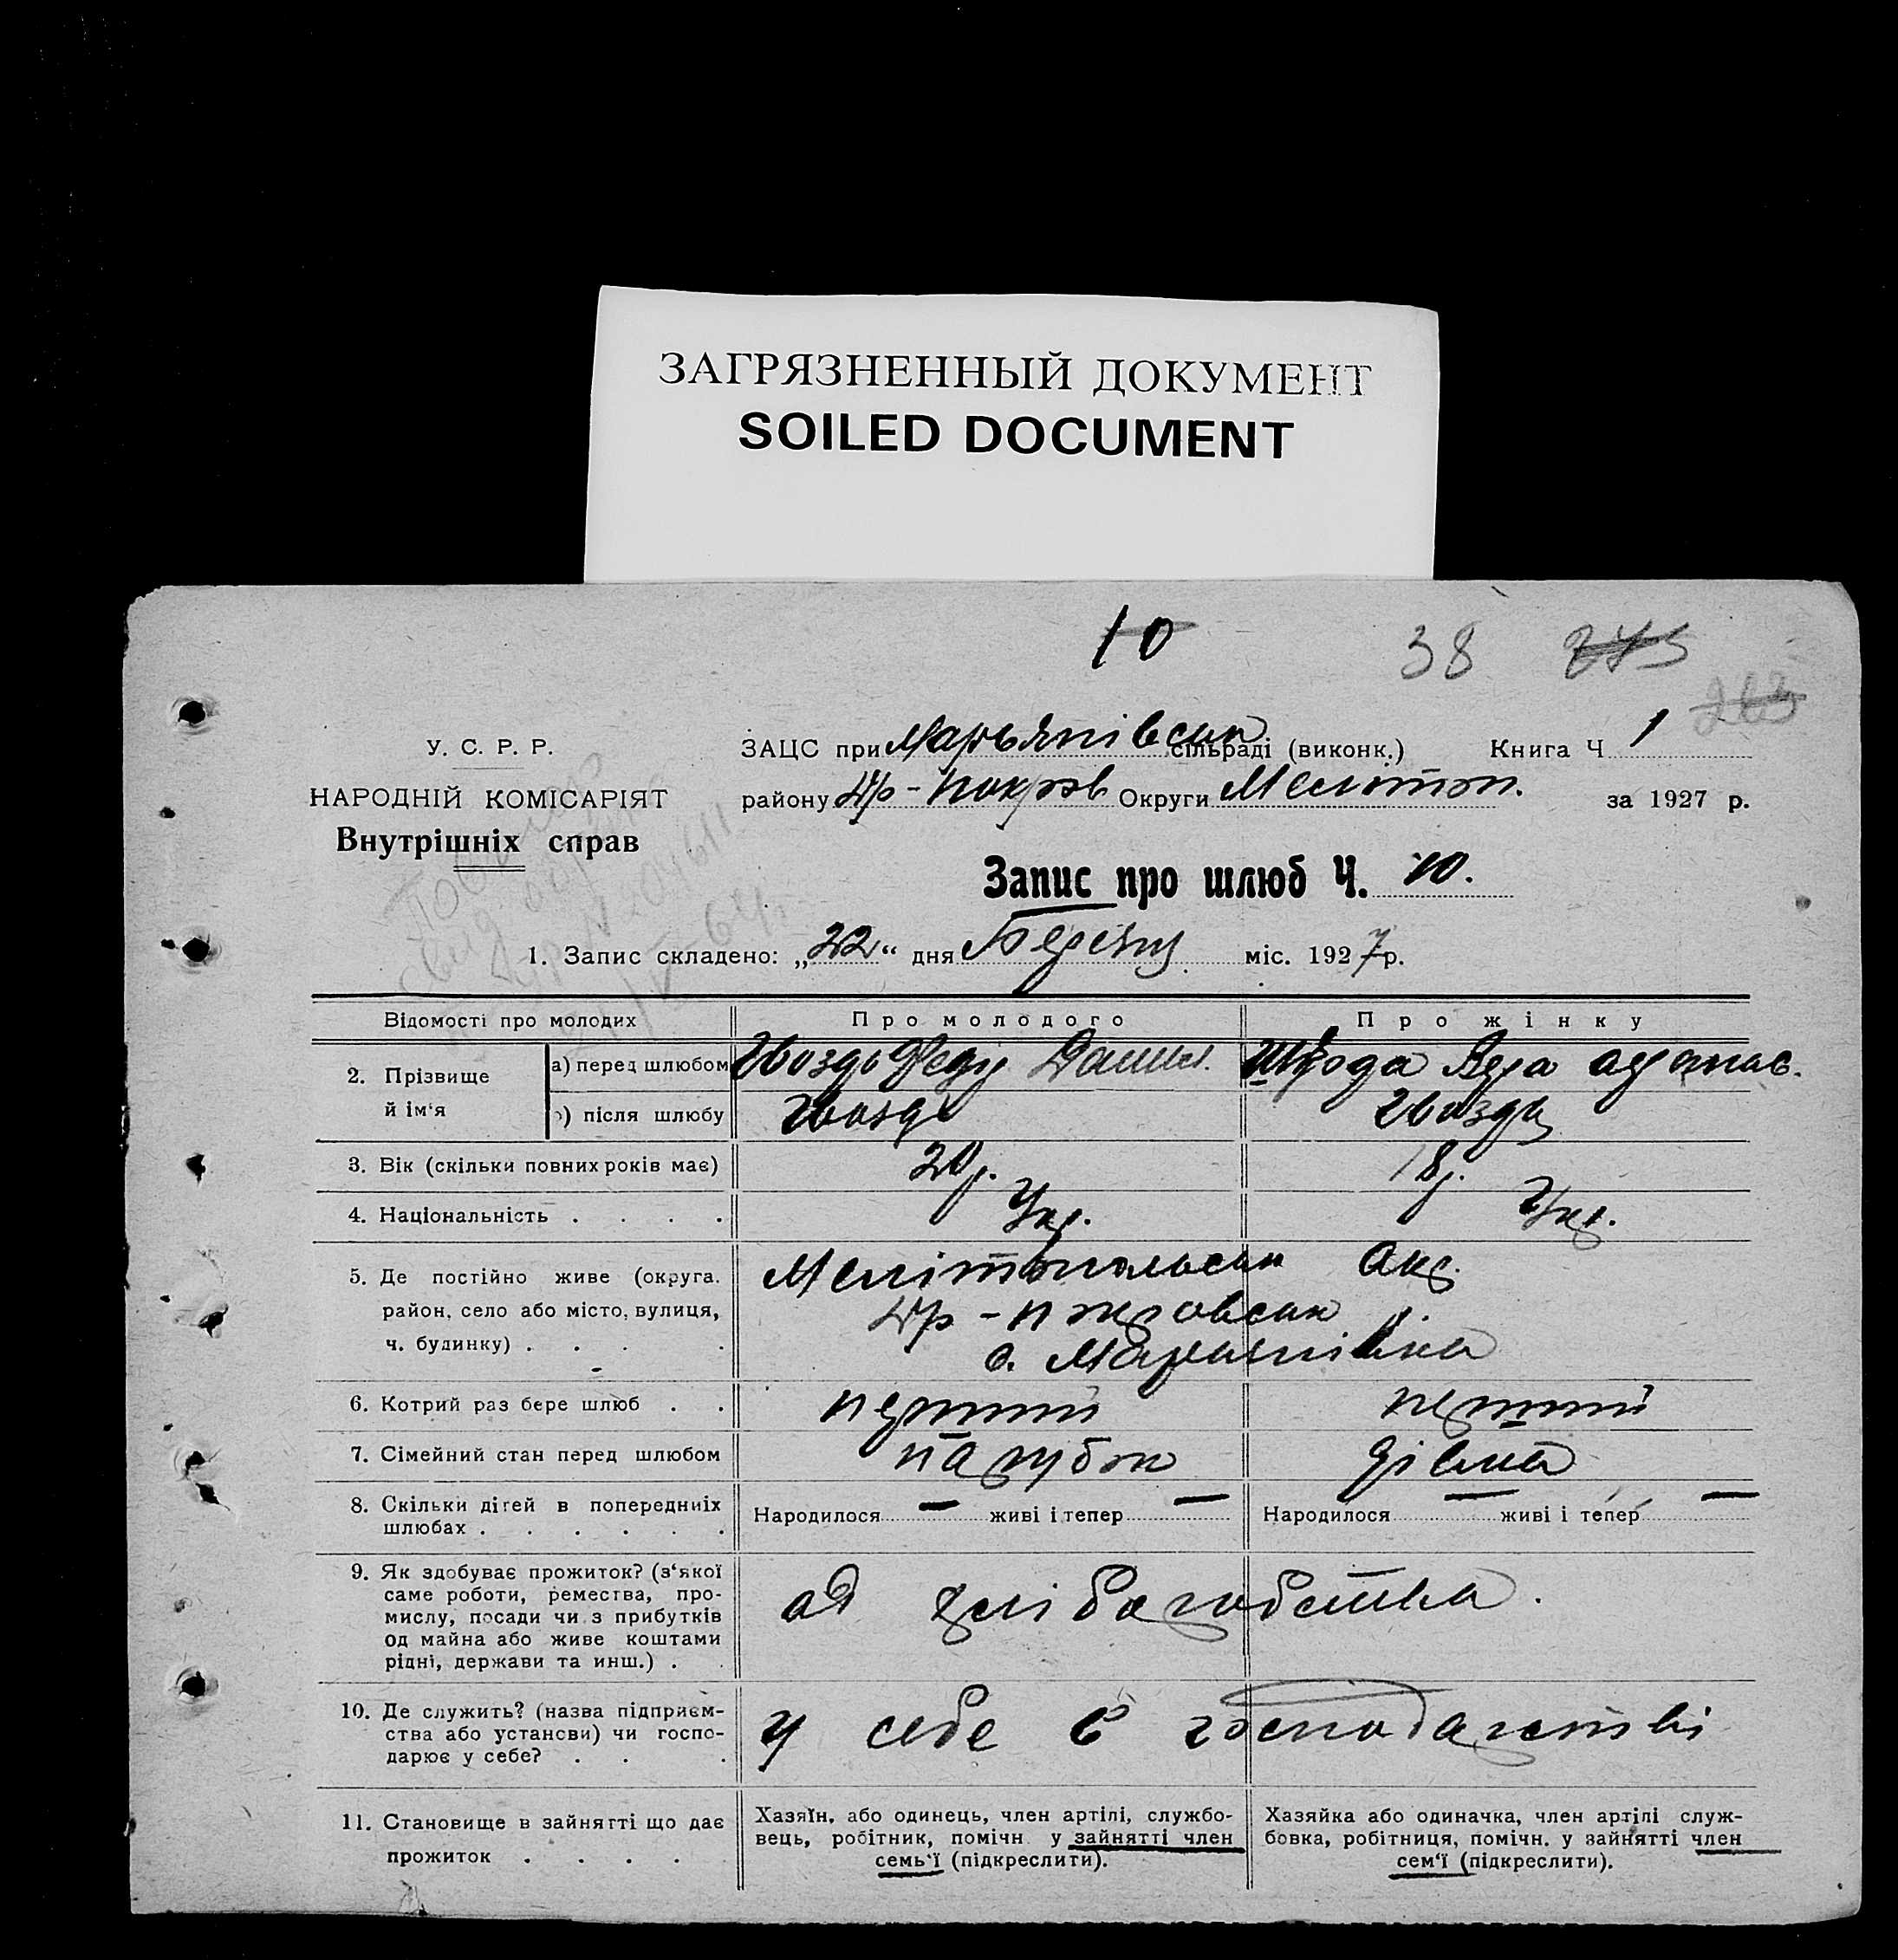 ЗАГРЯЗНЕННЫЙ ДОКУМЕНТ
SOILED DOCUMENT
10 38
У. С. Р. Р.
НАРОДНІЙ КОМІСАРІЯТ
Внутрішніх справ
ЗАЦС при Марьянівськ сільраді (виконк.) Книга Ч 1
району Др-Покров Округи Мелітоп. за 1927 р.
Запис про шлюб Ч. 10.
1. Запис складено: „22“ дня Березня міс. 1927 р.
Відомості про молодих Про молодого Про жінку
2. Прізвище й ім‘я
а) перед шлюбом Гвоздь Федір Данил. Шкода Вера
б) після шлюбу Гвоздь Гвоздь
3. Вік (скільки повних років має) 20 р. 18 р.
4. Національність . . . . Укр. Укр.
5. Де постійно живе (округа. Мелітопольськ Окр.
район, село або місто, вулиця, Др-Покровськ р.
ч. будинку) . . . . с. Марьянівка
6. Котрий раз бере шлюб . . перший перший
7. Сімейний стан перед шлюбом парубок дівка
8. Скільки дітей в попередниіх
шлюбах . . . . . .
Народилося — живі і тепер — Народилося — живі і тепер —
9. Як здобуває прожиток? (з‘якої
саме роботи, ремества, про-
мислу, посади чи з прибутків
од майна або живе коштами
рідні, держави та инш.) . .
од хліборобства.
10. Де служить? (назва підприєм-
ства або установи) чи госпо-
дарює у себе? . . .
у себе в господарстві
11. Становище в зайнятті що дає
прожиток . . . . .
Хазяїн, або одинець, член артілі, службо-
вець, робітник, помічн. у зайнятті член
семь‘ї (підкреслити).
Хазяйка або одиначка, член артілі служ-
бовка, робітниця, помічн. у зайнятті член
сем‘ї (підкреслити).